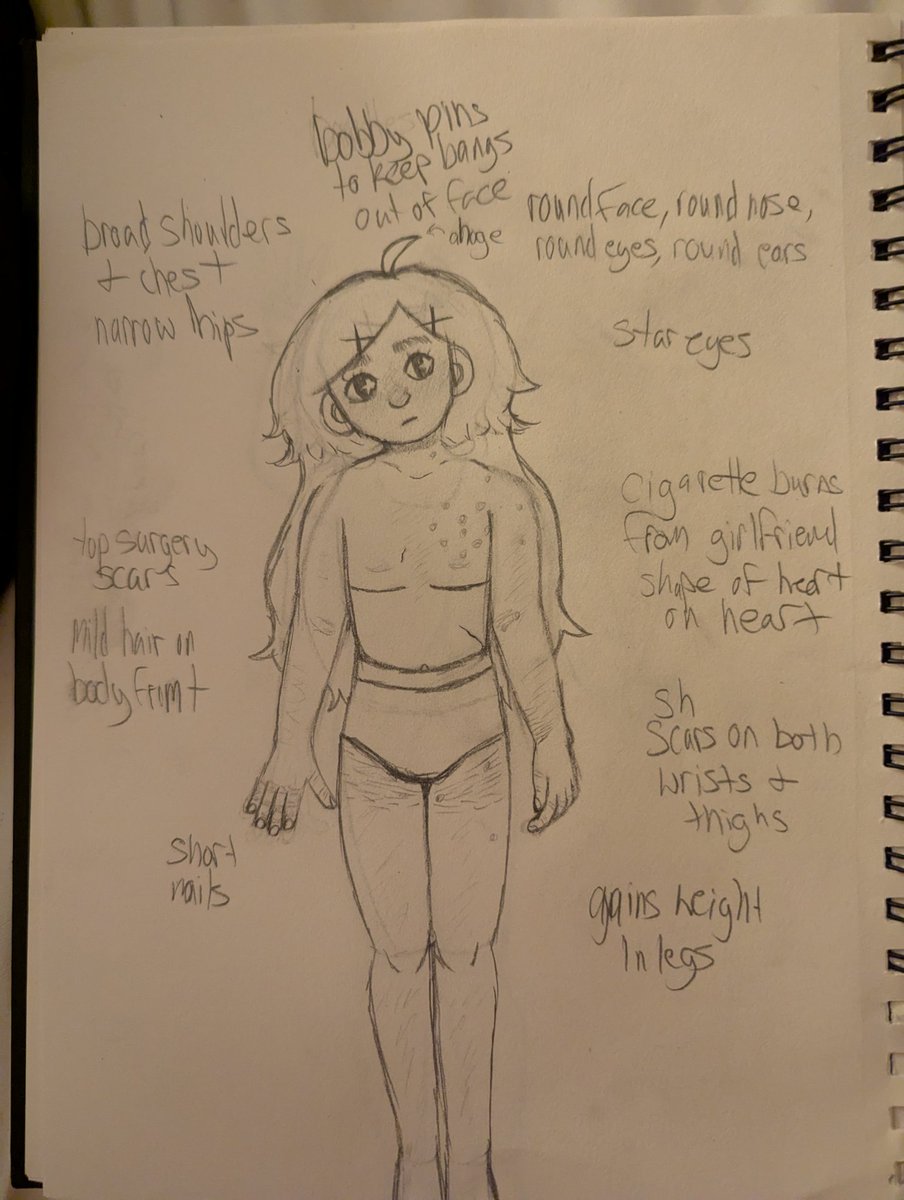 bobby pins
to keep bangs
out of face
ahoge
broad shoulders
+ chest
narrow hips
round face, round nose,
round eyes, round ears
star eyes
cigarette burns
from girlfriend
shape of heart
on heart
top surgery
scars
Mild hair on
body front
sh
scars on both
wrists +
thighs
short
nails
gains height
in legs